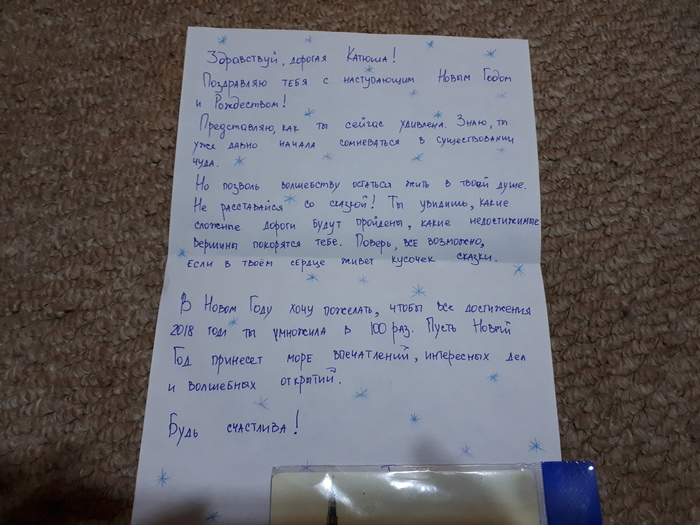 Здравствуй, дорогая Катюша!
Поздравляю тебя с наступающим Новым Годом
и Рождеством!
Представляю, как ты сейчас удивлена. Знаю, ты
уже давно начала сомневаться в существовании
чуда.
Но позволь волшебству остаться жить в твоей душе.
Не расставайся со сказкой! Ты увидишь, какие
сложные дороги будут пройдены, какие недостижимые
вершины покорятся тебе. Поверь, все возможно,
если в твоём сердце живет кусочек сказки.
В Новом Году хочу пожелать, чтобы все достижения
2018 года ты умножила в 100 раз. Пусть Новый
Год принесет море впечатлений, интересных дел
и волшебных открытий.
Будь счастлива!